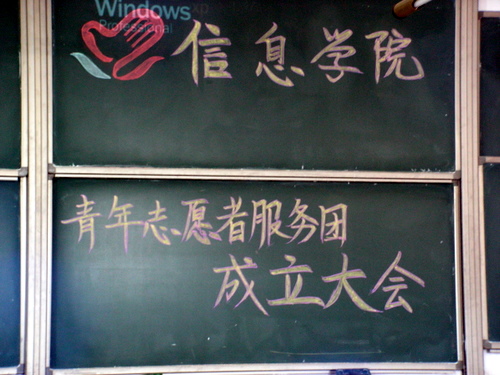 Windows XP
Professional
信息学院
青年志愿者服务团
成立大会